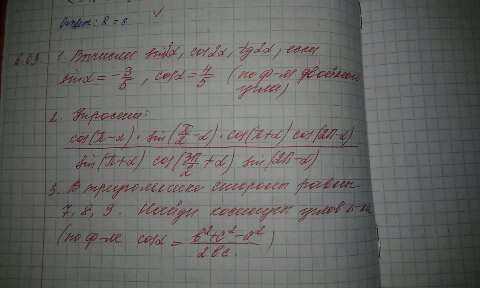 Ответ: R = 8
1. Вычисли sin2α, cos2α, tg2α, если
sinα = -3/5, cosα = 4/5 (по ф-ле двойного
угла)
2. Упрости:
cos(π-α)·sin(π/2-α)·cos(π+α) cos(2π-α)
sin(π+α) cos(3π/2+α) sin(2π-α)
3. В треугольнике стороны равны
7, 8, 9. Найди косинусы углов
(по ф-ле cosα = b²+c²-a²/2bc)